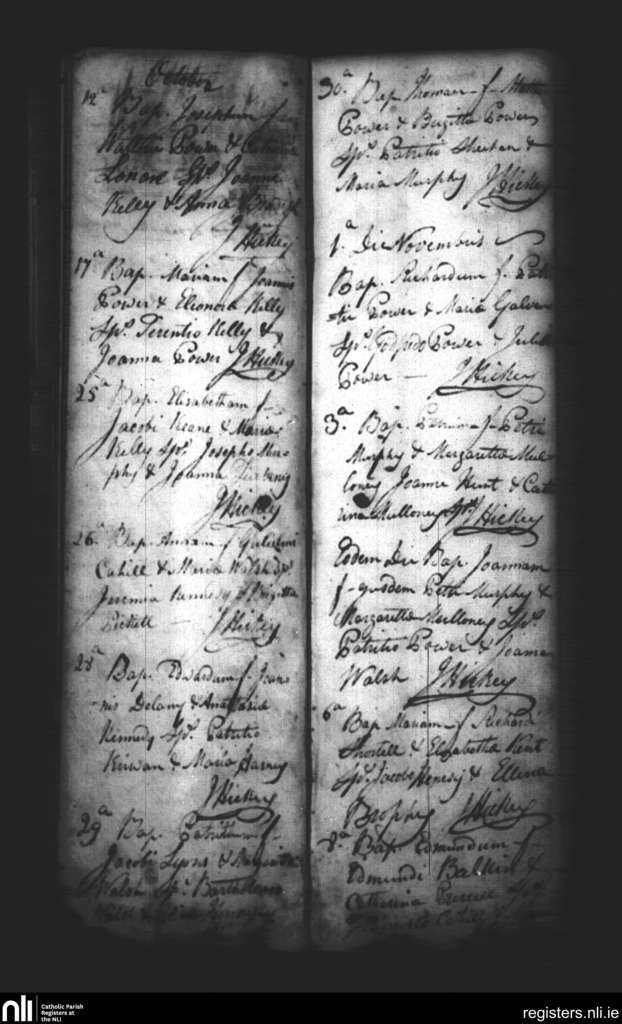 October
12ª Bap. Josephum f.
Walteri Power & Catherina
Lonane Spr. Joanne
Kelly & Anna
J Hickey
17ª Bap. Mariam f. Joannis
Power & Eleonora Kelly
Spr. Terentio Kelly &
Joanna Power J Hickey
25ª Bap. Elisabetham f.
Jacobi Keane & Maria
Kelly Spr. Josepho Mur-
phy & Joanna
J Hickey
26ª Bap. Annam f. Gulielmi
Cahill & Maria Walsh Spr.
Jeremia Kennedy & Brigitta
J Hickey
28ª
Bap. Edwardum f. Joan-
nis Delany & Anastasia
Kennedy Spr. Patritio
Kirwan & Maria Harvey
J Hickey
29ª Bap. Patritium f.
Jacobi Lyons & Margarita
Walsh Spr. Bartholomeo
30ª Bap. Thomam f. Matthei
Power & Brigitta Power
Spr. Patritio Sheehan &
Maria Murphy J Hickey
1ª Die Novembris
Bap. Richardum f. Patri-
tii Power & Maria Galvan
Spr. Godfrido Power & Julia
Power — J Hickey
3ª Bap. f. Petri
Murphy & Margaritta Mul-
loney Joanne Hunt & Cath
rina Mulloney Spr. J Hickey
Eodem Die Bap. Joannam
f. quodem Petri Murphy &
Margaritta Mulloney Spr.
Patritio Power & Joanna
Walsh J Hickey
6ª Bap. Mariam f. Richard
Shortell & Elizabetha Kent
Spr. Jacobo Henesy & Ellena
Brophy J Hickey
8ª Bap. Edmundum f.
Edmundi Balkin &
Catherina Spr.
Cahill &
nli
Catholic Parish
Registers at
the NLI
registers.nli.ie